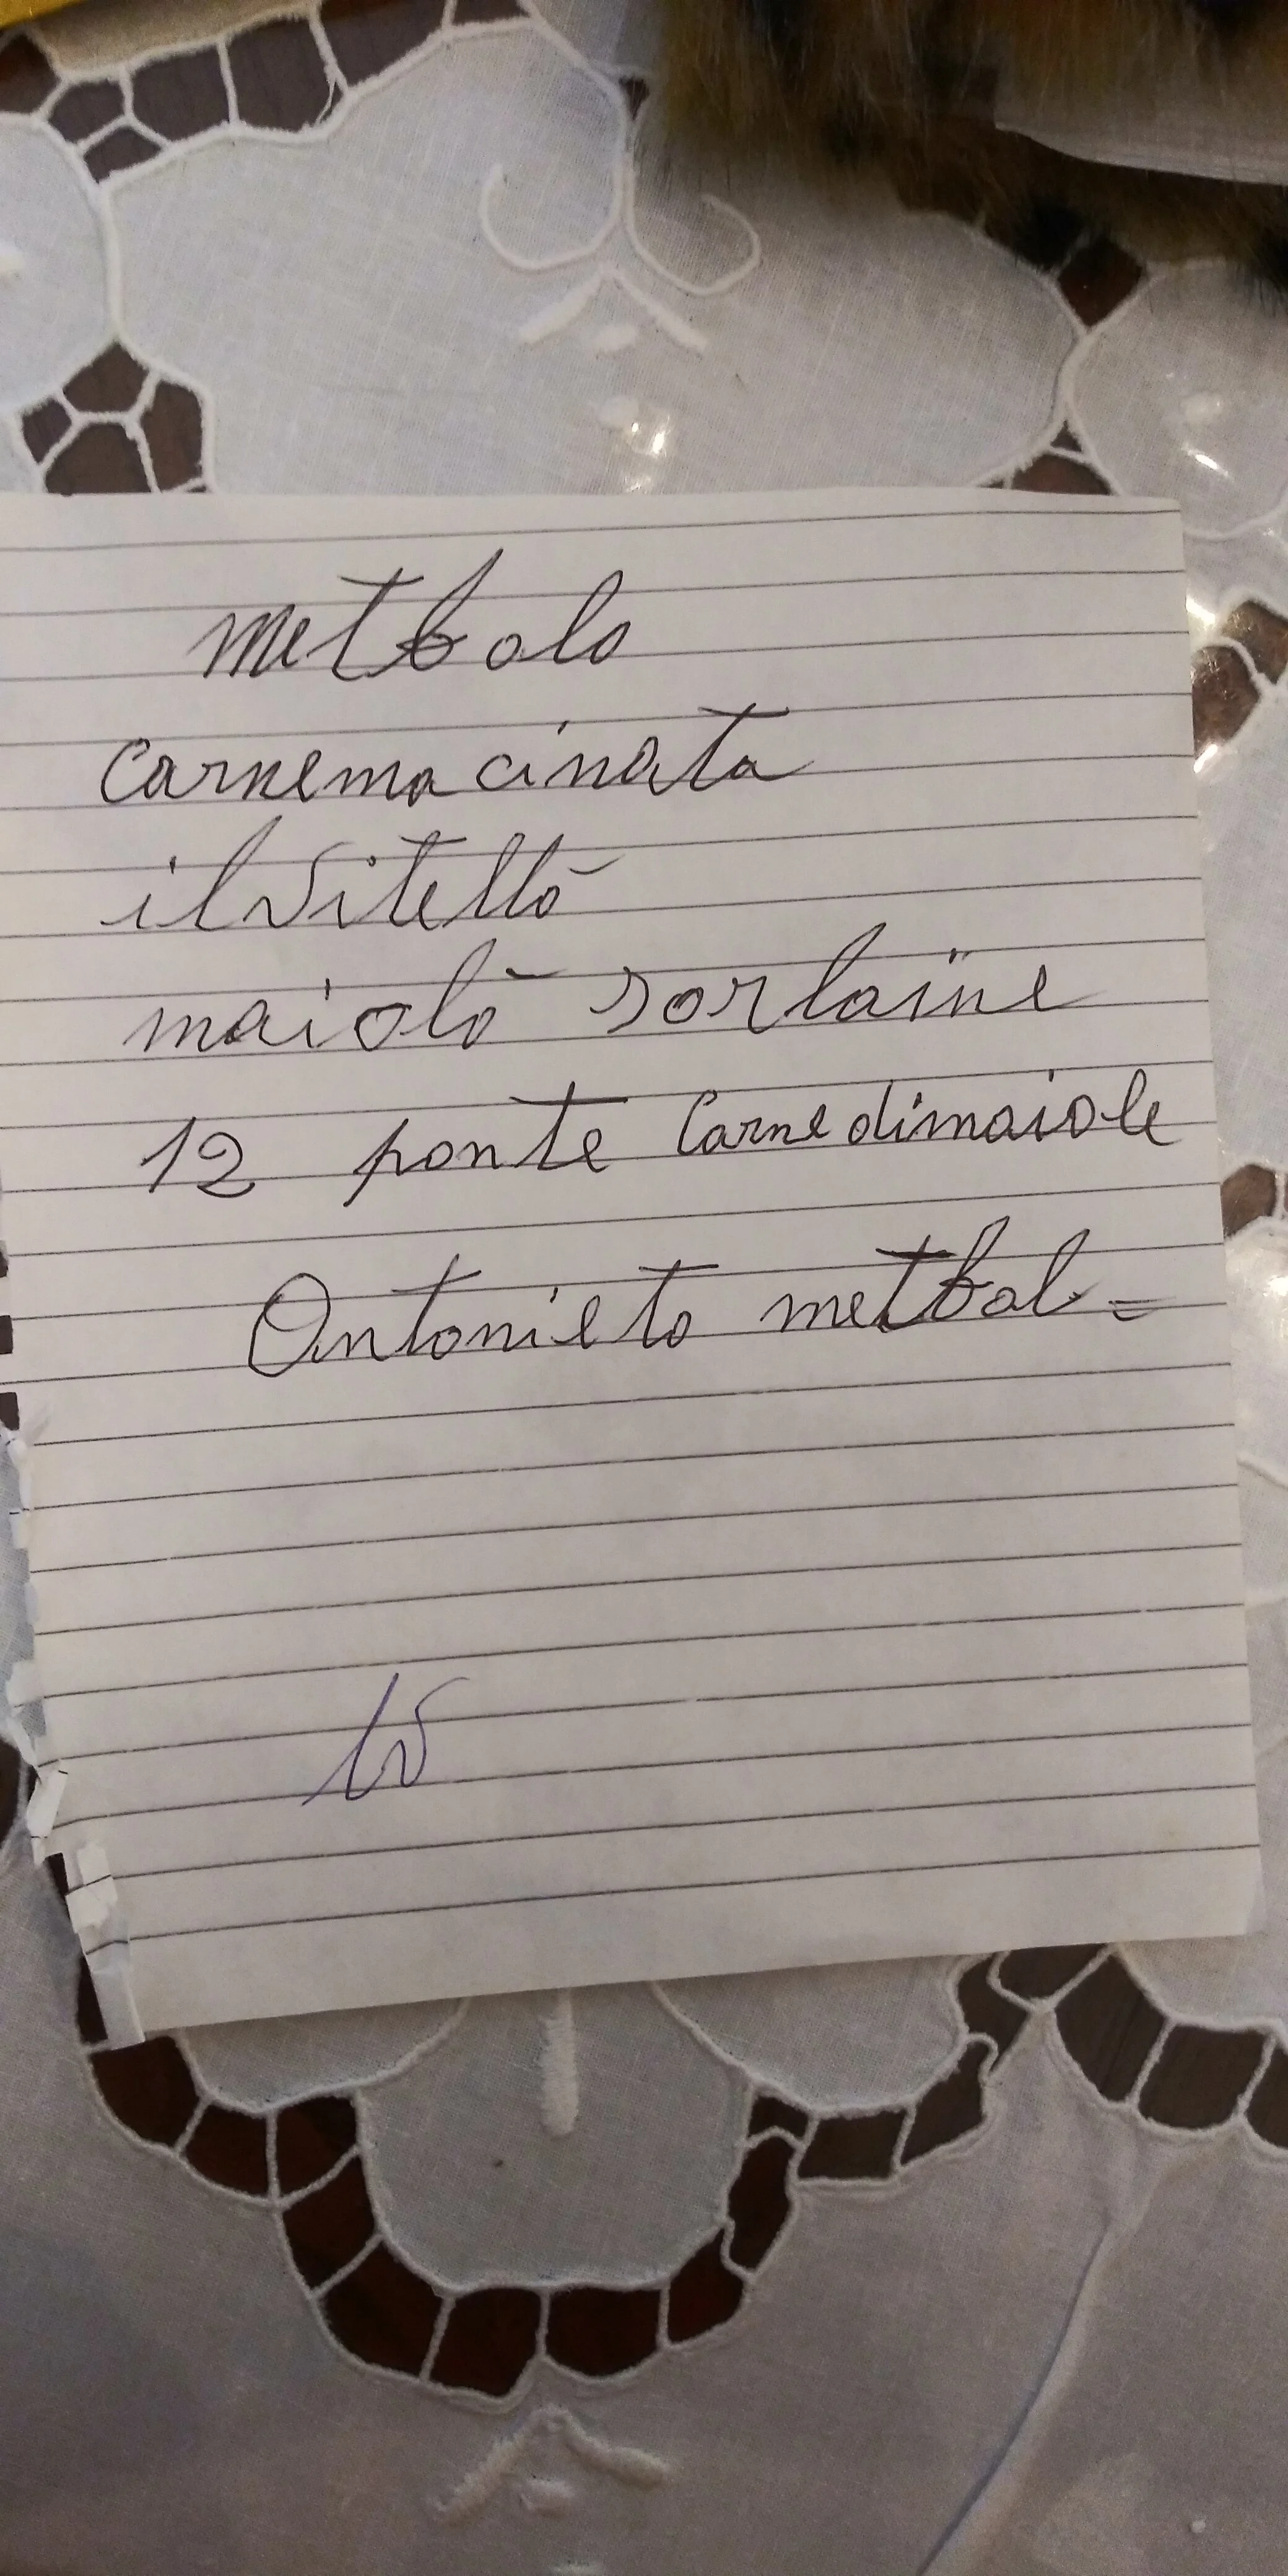 metbolo
Carnemacinata
ilvitellò
maiolò sorlaine
12 ponte Carnedimaiole
Antonieto metbol =